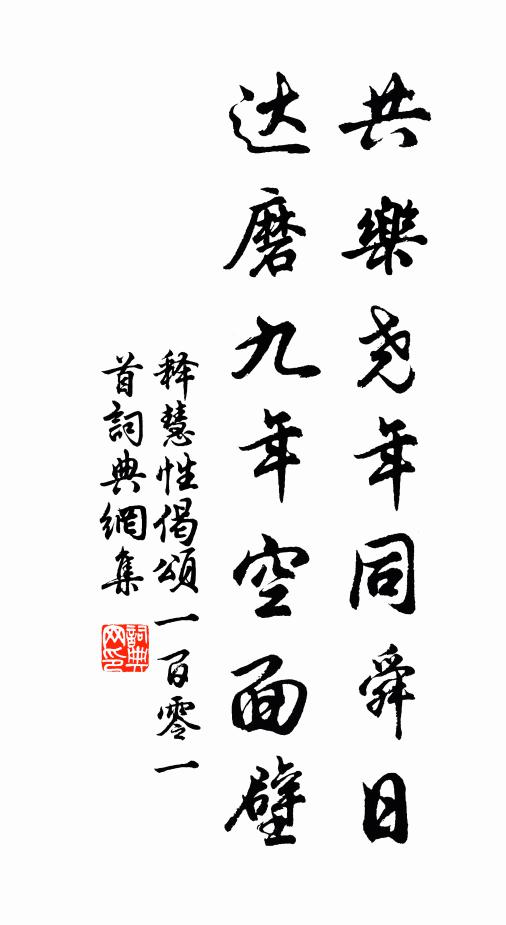 共樂尧年同舜日
达磨九年空面壁
释慧性偈頌一百零一
首詞典網集
詞典网印